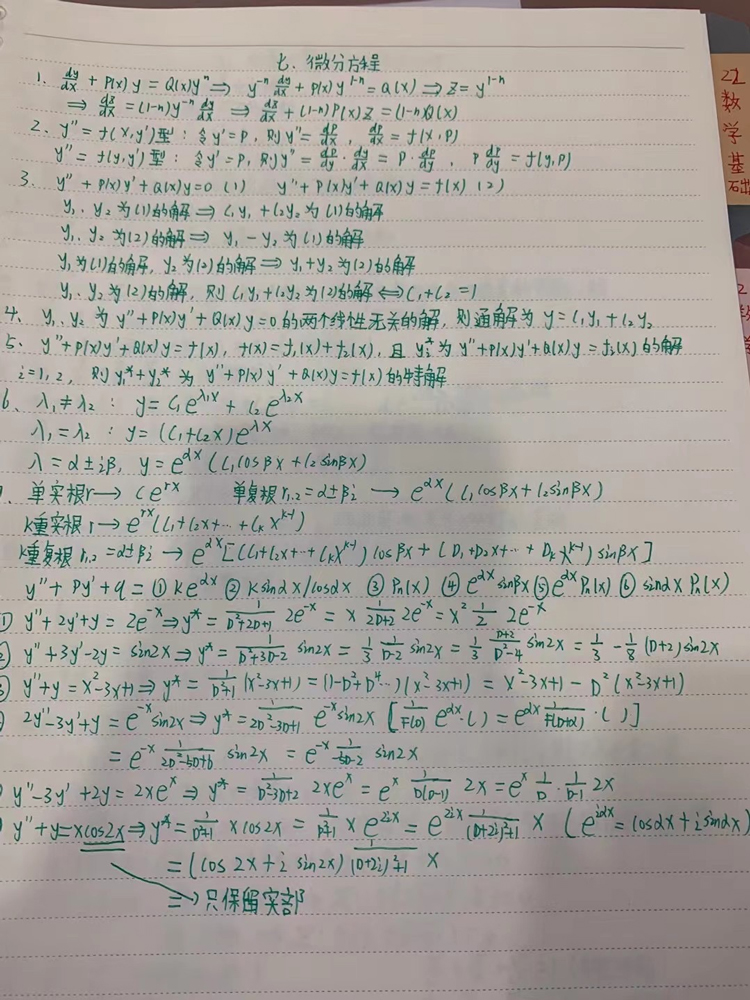 七、微分方程
1. dy/dx + P(x)y = Q(x)yⁿ ⇒ y⁻ⁿ dy/dx + P(x)y¹⁻ⁿ = Q(x) ⇒ z = y¹⁻ⁿ
⇒ dz/dx = (1-n)y⁻ⁿ dy/dx ⇒ dz/dx + (1-n)P(x)z = (1-n)Q(x)
2. y″ = f(x,y′)型: 令y′=P, 则y″ = dp/dx, dp/dx = f(x,p)
y″ = f(y,y′)型: 令y′=P, 则y″ = dp/dy · dy/dx = P · dp/dy, P dp/dy = f(y,p)
3. y″ + P(x)y′ + Q(x)y = 0 (1) y″ + P(x)y′ + Q(x)y = f(x) (2)
y₁、y₂为(1)的解 ⇒ C₁y₁ + C₂y₂为(1)的解
y₁、y₂为(2)的解 ⇒ y₁ - y₂为(1)的解
y₁为(1)的解, y₂为(2)的解 ⇒ y₁+y₂为(2)的解
y₁、y₂为(2)的解, 则C₁y₁+C₂y₂为(2)的解 ⇔ C₁+C₂=1
4、y₁、y₂为y″+P(x)y′+Q(x)y=0的两个线性无关的解, 则通解为y=C₁y₁+C₂y₂
5、y″+P(x)y′+Q(x)y=f(x), f(x)=f₁(x)+f₂(x), 且yᵢ*为y″+P(x)y′+Q(x)y=fᵢ(x)的解
i=1,2, 则y₁*+y₂*为y″+P(x)y′+Q(x)y=f(x)的特解
6、λ₁≠λ₂: y = C₁e^(λ₁x) + C₂e^(λ₂x)
λ₁=λ₂: y=(C₁+C₂x)e^(λx)
λ=α±iβ, y=e^(αx)(C₁cosβx+C₂sinβx)
单实根r→Ce^(rx) 单复根r₁,₂=α±βi → e^(αx)(C₁cosβx+C₂sinβx)
k重实根r→e^(rx)(C₁+C₂x+…+Cₖx^(k-1))
k重复根r₁,₂=α±βi → e^(αx)[(C₁+C₂x+…+Cₖx^(k-1))cosβx+(D₁+D₂x+…+Dₖx^(k-1))sinβx]
y″+Py′+q = ① ke^(αx) ② ksinαx/cosαx ③ Pₙ(x) ④ e^(αx)sinβx ⑤ e^(αx)Pₙ(x) ⑥ sinαxPₙ(x)
① y″+2y′+y=2e^(-x) ⇒ y* = 1/(D²+2D+1) 2e^(-x) = x 1/(2D+2) 2e^(-x) = x² 1/2 2e^(-x)
② y″+3y′-2y=sin2x ⇒ y* = 1/(D²+3D-2) sin2x = 1/3 1/(D-2) sin2x = 1/3 (D+2)/(D²-4) sin2x = 1/3 -1/8 (D+2)sin2x
③ y″+y=x²-3x+1 ⇒ y* = 1/(D²+1) (x²-3x+1) = (1-D²+D⁴…)(x²-3x+1) = x²-3x+1-D²(x²-3x+1)
2y″-3y′+y=e^(-x)sin2x ⇒ y* = 1/(2D²-3D+1) e^(-x)sin2x [1/F(D) e^(αx)·( ) = e^(αx) 1/F(D+α) ·( )]
= e^(-x) 1/(2D²-5D+6) sin2x = e^(-x) 1/(-5D-2) sin2x
y″-3y′+2y=2xe^x ⇒ y* = 1/(D²-3D+2) 2xe^x = e^x 1/(D(D-1)) 2x = e^x 1/D · 1/(D-1) 2x
y″+y=xcos2x ⇒ y* = 1/(D²+1) xcos2x = 1/(D²+1) xe^(2ix) = e^(2ix) 1/((D+2i)²+1) x (e^(iαx)=cosαx+isinαx)
=(cos2x+isin2x) 1/((D+2i)²+1) x
=→只保留实部
22
数
学
基
础